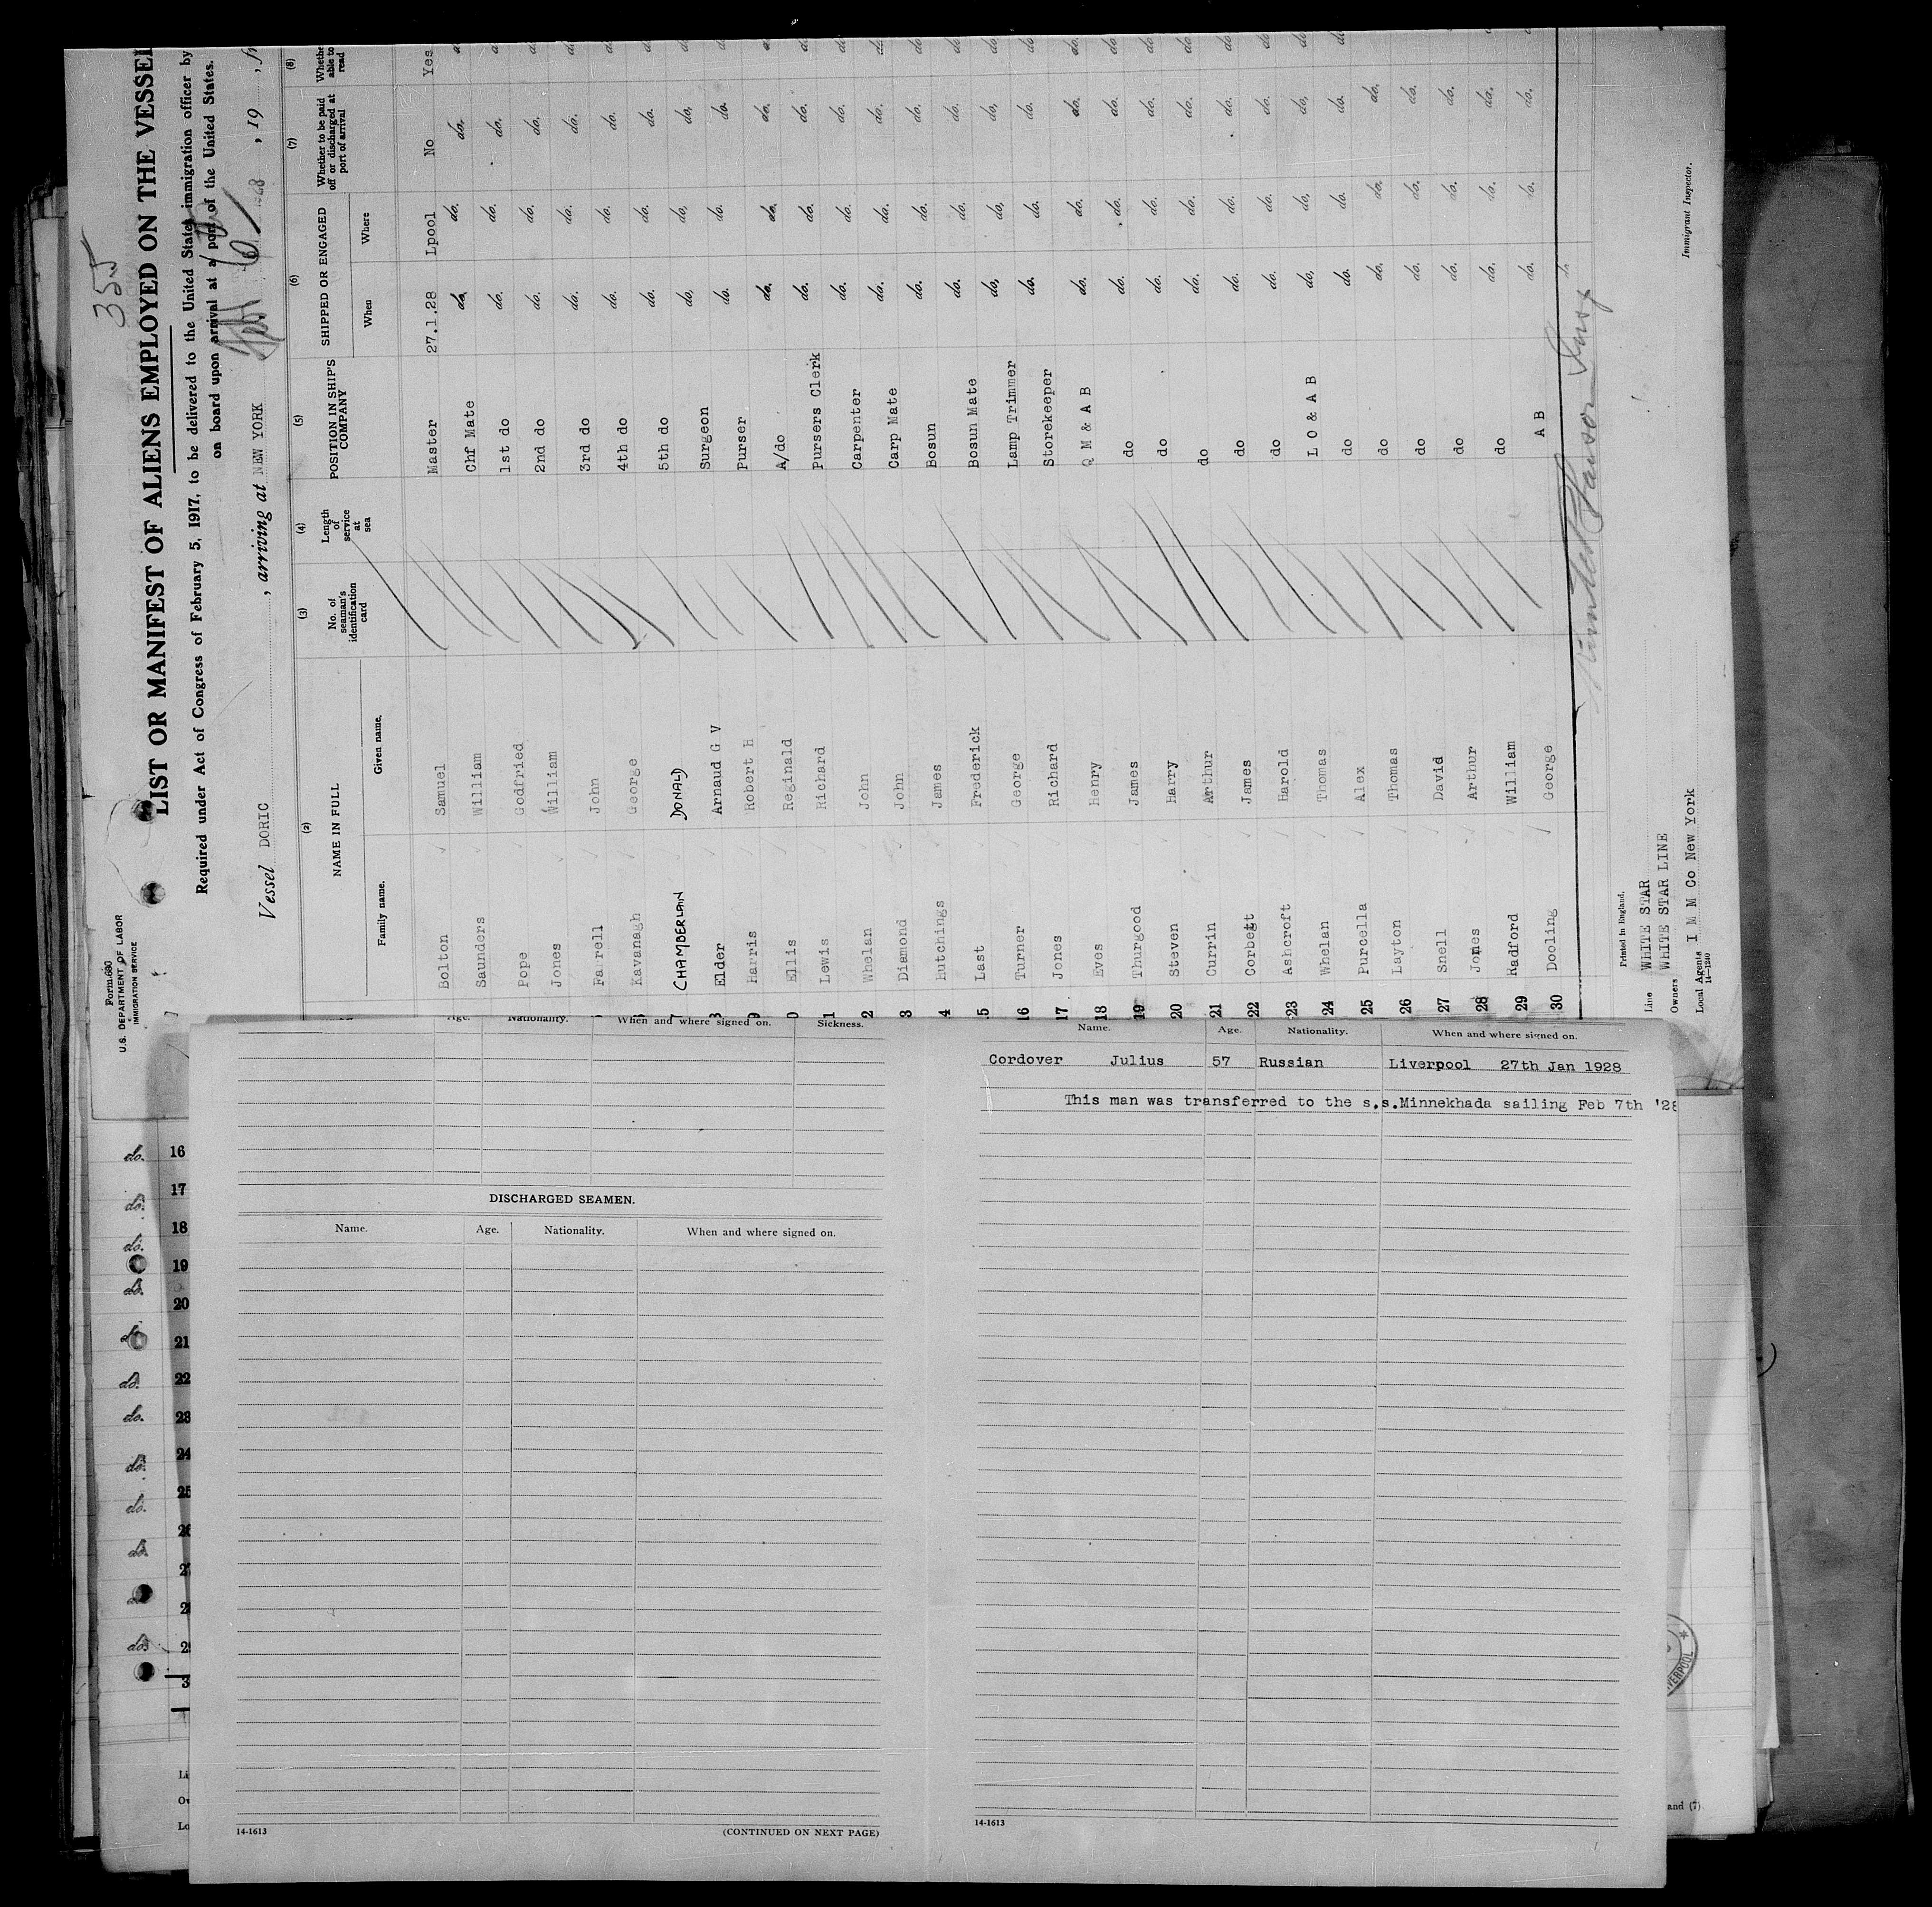 355
Form 680
U.S. DEPARTMENT OF LABOR
IMMIGRATION SERVICE
LIST OR MANIFEST OF ALIENS EMPLOYED ON THE VESSEL
Required under Act of Congress of February 5, 1917, to be delivered to the United States immigration officer by
on board upon arrival at a port of the United States.
Vessel DORIC , arriving at NEW YORK 1928 , 19 , fr
(2) (3) (4) (5) (6) (7) (8)
NAME IN FULL No. of seaman's identification card Length of service at sea POSITION IN SHIP'S COMPANY SHIPPED OR ENGAGED Whether to be paid off or discharged at port of arrival Whethe able to read
Family name. Given name. When Where
Bolton Samuel Master 27.1.28 Lpool No Yes
Saunders William Chf Mate do. do. do. do
Pope Godfried 1st do do. do. do. do
Jones William 2nd do do. do. do. do
Farrell John 3rd do do. do. do. do
Kavanagh George 4th do do. do. do. do
7 CHAMBERLAIN DONALD 5th do do. do. do. do
8 Elder Arnaud G V Surgeon do. do. do. do
9 Harris Robert H Purser do. do. do. do
0 Ellis Reginald A/do do. do. do. do
1 Lewis Richard Pursers Clerk do. do. do. do
2 Whelan John Carpenter do. do. do. do
3 Diamond John Carp Mate do. do. do. do
4 Hutchings James Bosun do. do. do. do
5 Last Frederick Bosun Mate do. do. do. do
16 Turner George Lamp Trimmer do. do. do. do
17 Jones Richard Storekeeper do. do. do. do
18 Eves Henry Q M & A B do. do. do. do
19 Thurgood James do do. do. do. do
20 Steven Harry do do. do. do. do
21 Currin Arthur do do. do. do. do
22 Corbett James do do. do. do. do
23 Ashcroft Harold do do. do. do. do
24 Whelan Thomas L O & A B do. do. do. do
25 Purcella Alex do do. do. do. do
26 Layton Thomas do do. do. do.
27 Snell David do do. do. do.
28 Jones Arthur do do. do. do.
29 Radford William do do. do. do.
30 Dooling George A B do
Printed in England.
Line WHITE STAR
Owners WHITE STAR LINE
Local Agents I M M Co New York
14-1240
Immigrant Inspector.
Age. Nationality. When and where signed on. Sickness.
DISCHARGED SEAMEN.
Name. Age. Nationality. When and where signed on.
14-1613 (CONTINUED ON NEXT PAGE)
Name. Age. Nationality. When and where signed on.
Cordover Julius 57 Russian Liverpool 27th Jan 1928
This man was transferred to the s.s.Minnekhada sailing Feb 7th '28
14-1613
do. 16
17
do. 18
do. 19
do. 20
do. 21
do. 22
do. 23
do. 24
do. 25
do. 26
do.
do.
Li
Ow
Lo
and (7)